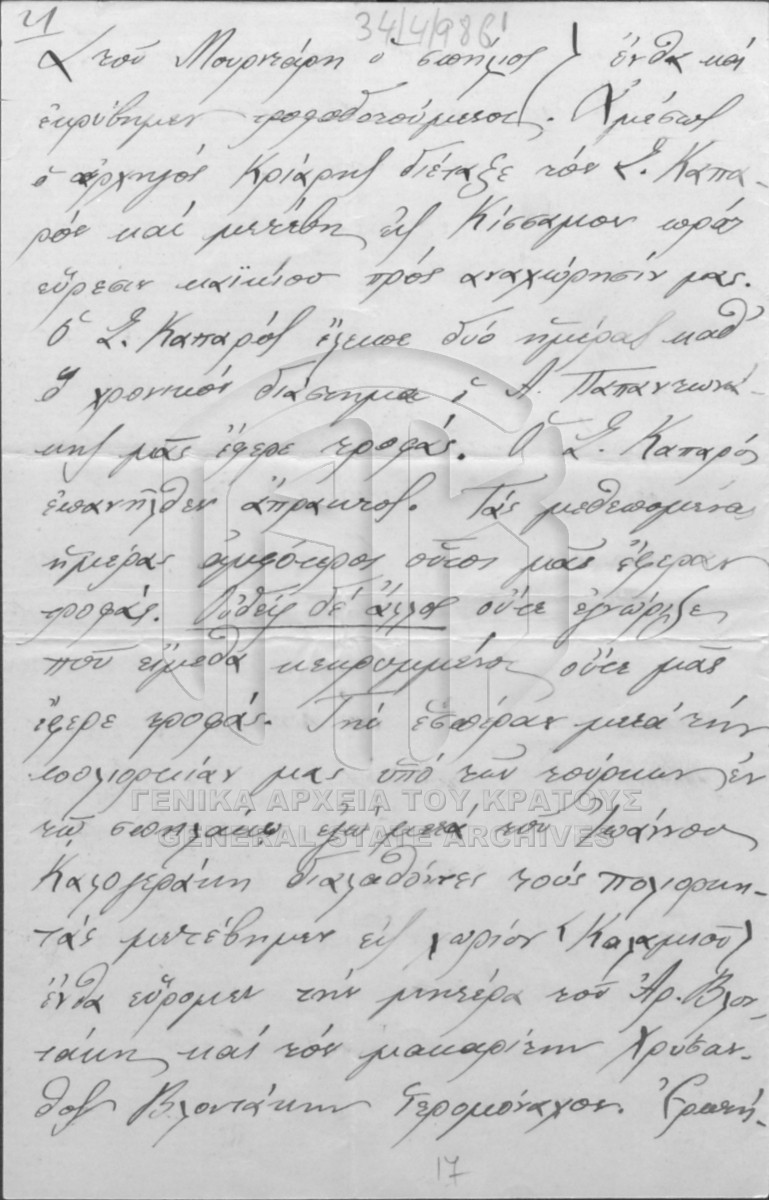 21
34/4/986
(τοῦ Μουρντάρη ὁ σπῆλιος) ἔνθα καί
ἐκρύβημεν τροφοδοτούμενοι. Ἀμέσως
ὁ ἀρχηγός Κριάρης διέταξε τόν Σ. Καπα-
ρόν καί μετέβη εἰς Κίσσαμον πρός
εὕρεσιν καϊκίου πρός αναχώρησίν μας.
Ὁ Σ. Καπαρός ἔλειπε δυό ἡμέρας καθ'
ὅ χρονικόν διάστημα ὁ Α. Παπαντωνά-
κης μᾶς ἔφερε τροφάς. Ὁ Σ. Καπαρός
ἐπανῆλθεν ἄπρακτος. Τάς μεθεπομένας
ἡμέρας ἀμφότεροι οὗτοι μᾶς ἔφεραν
τροφάς. Οὐδείς δέ ἄλλος οὔτε ἐγνώριζε
ποῦ εἴμεθα κεκρυμμένοι οὔτε μᾶς
ἔφερε τροφάς. Τήν ἑσπέραν μετά τήν
πολιορκίαν μας ὑπό τῶν τούρκων ἐν
τῷ σπηλαίῳ ἐγώ μετά τοῦ Ἰωάννου
Καλογεράκη διαλαθόντες τούς πολιορκη-
τάς μετέβημεν εἰς χωρίον (Καλαμιοῦ)
ἔνθα εὕρομεν τήν μητέρα τοῦ Ἀρ. Βλον-
τάκη καί τόν μακαρίτην Χρύσαν-
θον Βλοντάκην Ἱερομόναχον. Ἐρωτή-
17
ΓΕΝΙΚΑ ΑΡΧΕΙΑ ΤΟΥ ΚΡΑΤΟΥΣ
GENERAL STATE ARCHIVES